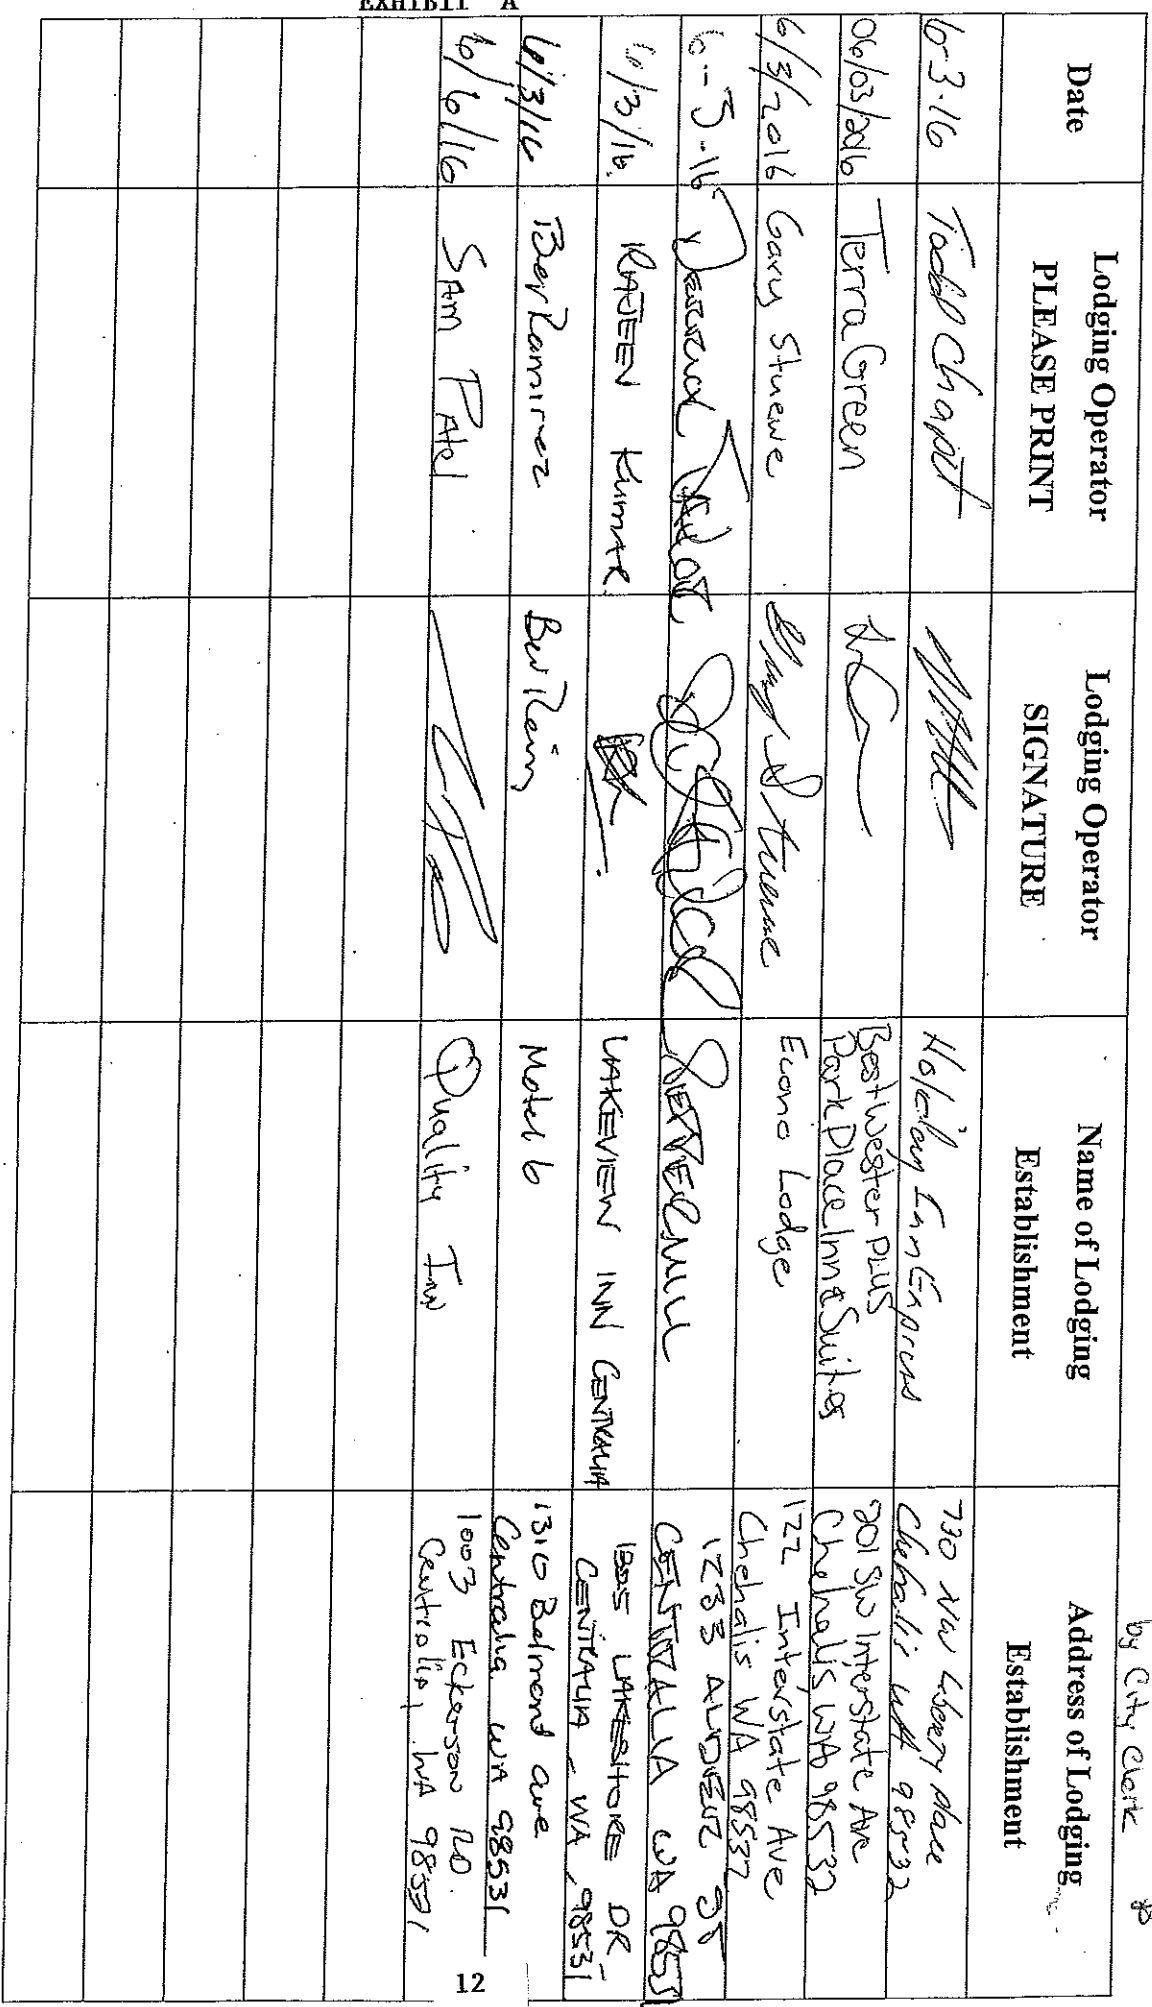 EXHIBIT A
by City Clerk
Date
Lodging Operator
PLEASE PRINT
Lodging Operator
SIGNATURE
Name of Lodging
Establishment
Address of Lodging
Establishment
6-3-16
Todd Chaput
Holiday Inn Express
730 NW Liberty place
Chehalis WA 98532
06/03/2016
Terra Green
Best Wester PLUS
Park Place Inn & Suites
201 SW Interstate Ave
Chehalis WA 98532
6/3/2016
Gary Stuewe
Gary Stuewe
Econo Lodge
122 Interstate Ave
Chehalis WA 98532
6-3-16
1233 ALDER ST
CENTRALIA WA 98531
6/3/16.
RAJEEN KUMAR
LAKEVIEW INN CENTRALIA
LAKESHORE DR
CENTRALIA - WA, 98531
6/3/16
Bev Ramirez
Motel 6
1310 Belmond ave
Centralia WA 98531
6/6/16
SAM PAtel
Quality Inn
1003 Eckerson RD.
Centralia, WA 98531
12